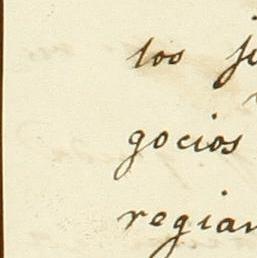 los
gocios
regian